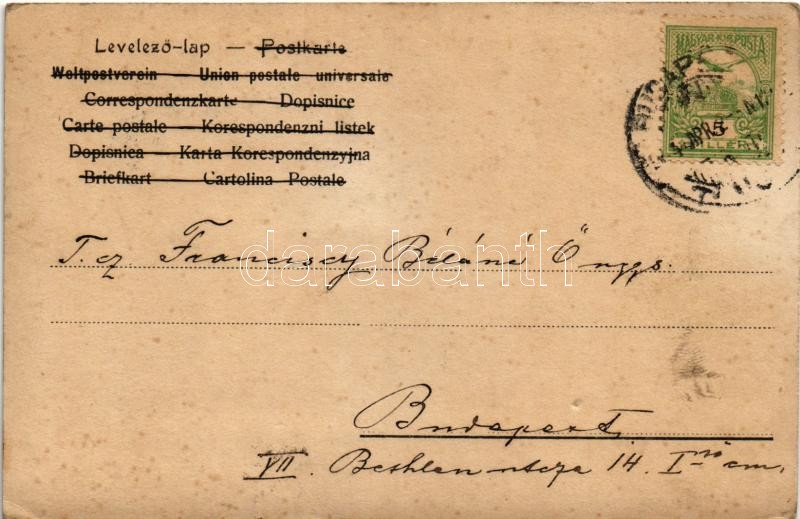 Levelező-lap — Postkarte
Weltpostverein — Union postale universale
Correspondenzkarte — Dopisnice
Carte postale — Korespondenzni listek
Dopisnica — Karta Korespondenzyjna
Briefkart — Cartolina Postale
MAGYAR KIR. POSTA
5
FILLÉR
BUDAP
APR
T. cz. Franciscy Béláné Ő nggs.
darabanth
Budapest,
VII. Bethlen utcza 14. I em.